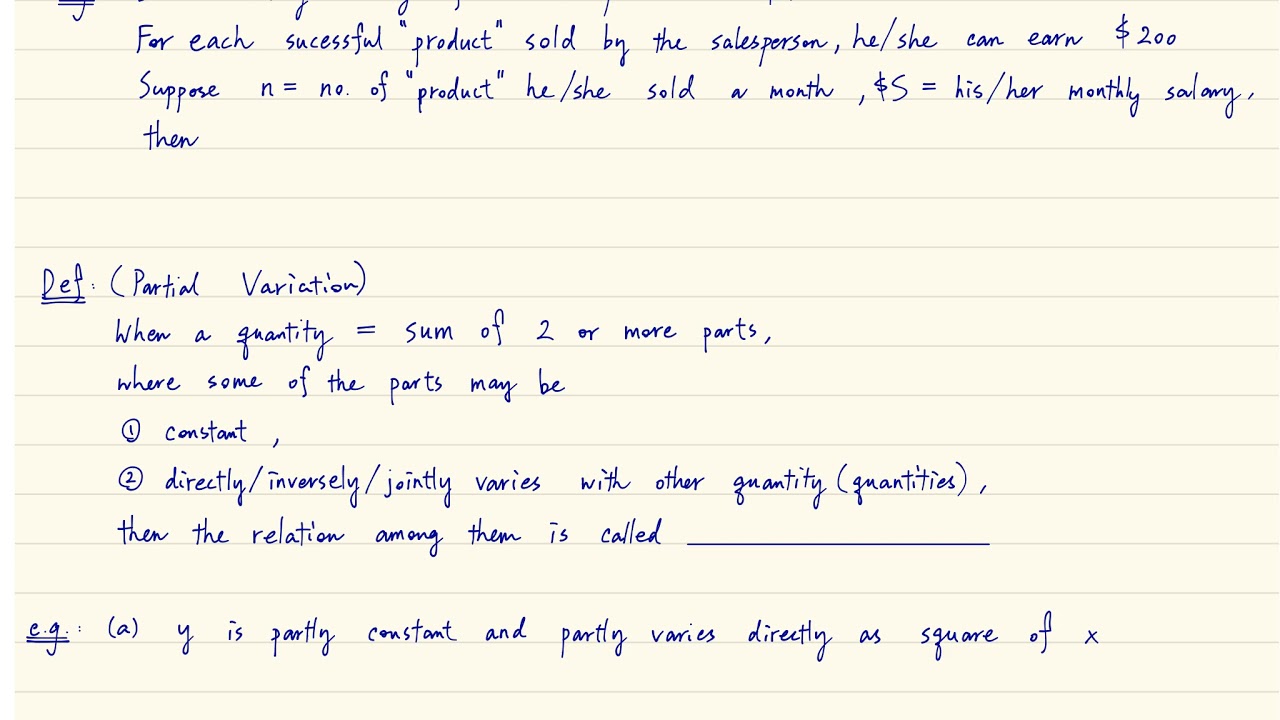 For each sucessful "product" sold by the salesperson, he/she can earn $200
Suppose n = no. of "product" he/she sold a month, $S = his/her monthly salary,
then
Def: (Partial Variation)
When a quantity = sum of 2 or more parts,
where some of the parts may be
① constant,
② directly/inversely/jointly varies with other quantity (quantities),
then the relation among them is called
e.g.: (a) y is partly constant and partly varies directly as square of x